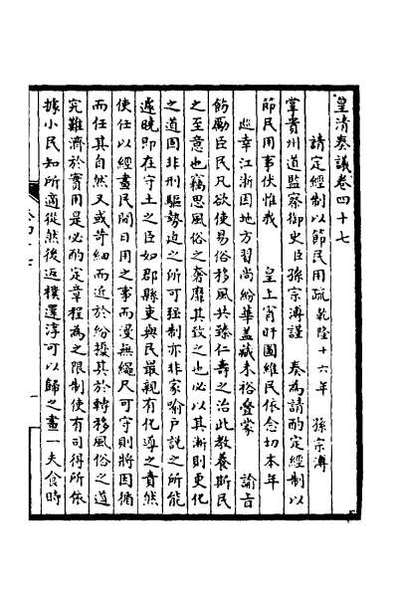 皇清奏議卷四十七
請定經制以節民用疏乾隆十六年 孫宗溥
掌貴州道監察御史臣孫宗溥謹 奏為請酌定經制以
節民用事伏惟我 皇上宵旰圖維民依念切本年
巡幸江浙因地方習尚紛華蓋藏未裕疊蒙 諭旨
飭勵臣民凡欲使易俗移風共臻仁壽之治此教養斯民
之至意也竊思風俗之奢靡其致之也必以其漸則更化
之道固非刑驅勢迫之所可強制亦非家喻戶說之所能
遽曉即在守土之臣如郡縣吏與民最親有化導之責然
使任以經畫民間日用之事而漫無繩尺可守則將因循
而任其自然又或苛細而近於紛擾其於轉移風俗之道
究難濟於實用是必酌定章程為之限制使有司得所依
據小民知所適從然後返樸還淳可以歸之畫一夫食時